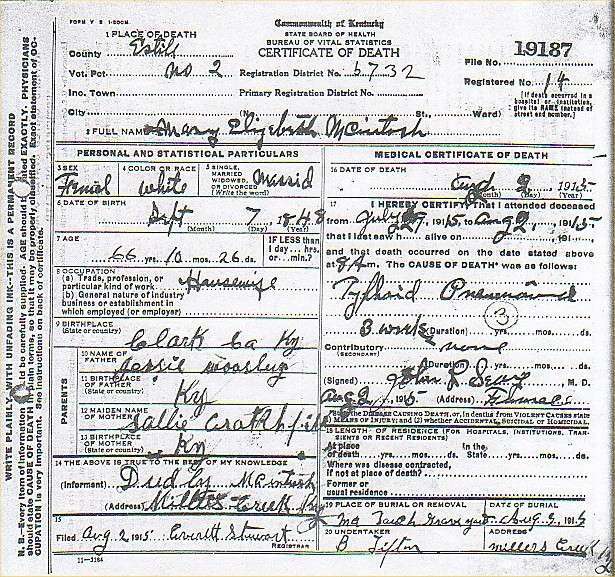 FORM V S 1-500M
Commonwealth of Kentucky
STATE BOARD OF HEALTH
BUREAU OF VITAL STATISTICS
CERTIFICATE OF DEATH
1 PLACE OF DEATH
County Estill
Vot. Pct. No 2
Registration District No. 5732
Inc. Town
Primary Registration District No.
City (No. St., Ward)
File No. 19187
Registered No. 14
[If death occurred in a hospital or institution, give its NAME instead of street and number.]
2 FULL NAME Mary Elizebeth McIntosh
PERSONAL AND STATISTICAL PARTICULARS
3 SEX Femal
4 COLOR OR RACE White
5 SINGLE, MARRIED WIDOWED, OR DIVORCED (Write the word) Marrid
6 DATE OF BIRTH
Sept 7 1848
(Month) (Day) (Year)
7 AGE
66 yrs. 10 mos. 26 ds.
IF LESS than 1 day, ... hrs. or ... min.?
8 OCCUPATION
(a) Trade, profession, or particular kind of work Housewife
(b) General nature of industry business or establishment in which employed (or employer)
9 BIRTHPLACE
(State or country) Clark Co Ky
PARENTS
10 NAME OF FATHER
11 BIRTHPLACE OF FATHER (State or country) Ky
12 MAIDEN NAME OF MOTHER Sallie
13 BIRTHPLACE OF MOTHER (State or country) Ky
14 THE ABOVE IS TRUE TO THE BEST OF MY KNOWLEDGE
(Informant) McIntosh
(Address) Millers Creek Ky
15
Filed Aug 2 1915 Everett Stewart
REGISTRAR
11-3184
MEDICAL CERTIFICATE OF DEATH
16 DATE OF DEATH
Aug 2 1915
(Month) (Day) (Year)
17 I HEREBY CERTIFY, That I attended deceased
from July 29 1915, to Aug 2, 1915
that I last saw h alive on
and that death occurred on the date stated above
at 8 A m. The CAUSE OF DEATH* was as follows:
Typhoid Pneumonia
3
3 weeks (Duration) yrs. mos. ds.
Contributory none
(SECONDARY)
(Duration) yrs. mos. ds.
(Signed) M. D.
Aug 2, 1915 (Address)
*State the DISEASE CAUSING DEATH, or, in deaths from VIOLENT CAUSES state (1) MEANS OF INJURY; and (2) whether ACCIDENTAL, SUICIDAL or HOMICIDAL.
18 LENGTH OF RESIDENCE (FOR HOSPITALS, INSTITUTIONS, TRANSIENTS OR RECENT RESIDENTS)
At place of death yrs. mos. ds. In the State yrs. mos. ds.
Where was disease contracted, if not at place of death?
Former or usual residence
19 PLACE OF BURIAL OR REMOVAL
Graveyard
DATE OF BURIAL
Aug 3, 1915
20 UNDERTAKER
B Tipton
ADDRESS
Millers Creek
WRITE PLAINLY WITH UNFADING INK--THIS IS A PERMANENT RECORD
N. B.--Every item of information should be carefully supplied. AGE should be stated EXACTLY. PHYSICIANS should state CAUSE OF DEATH in plain terms, so that it may be properly classified. Exact statement of OCCUPATION is very important. See instructions on back of certificate.